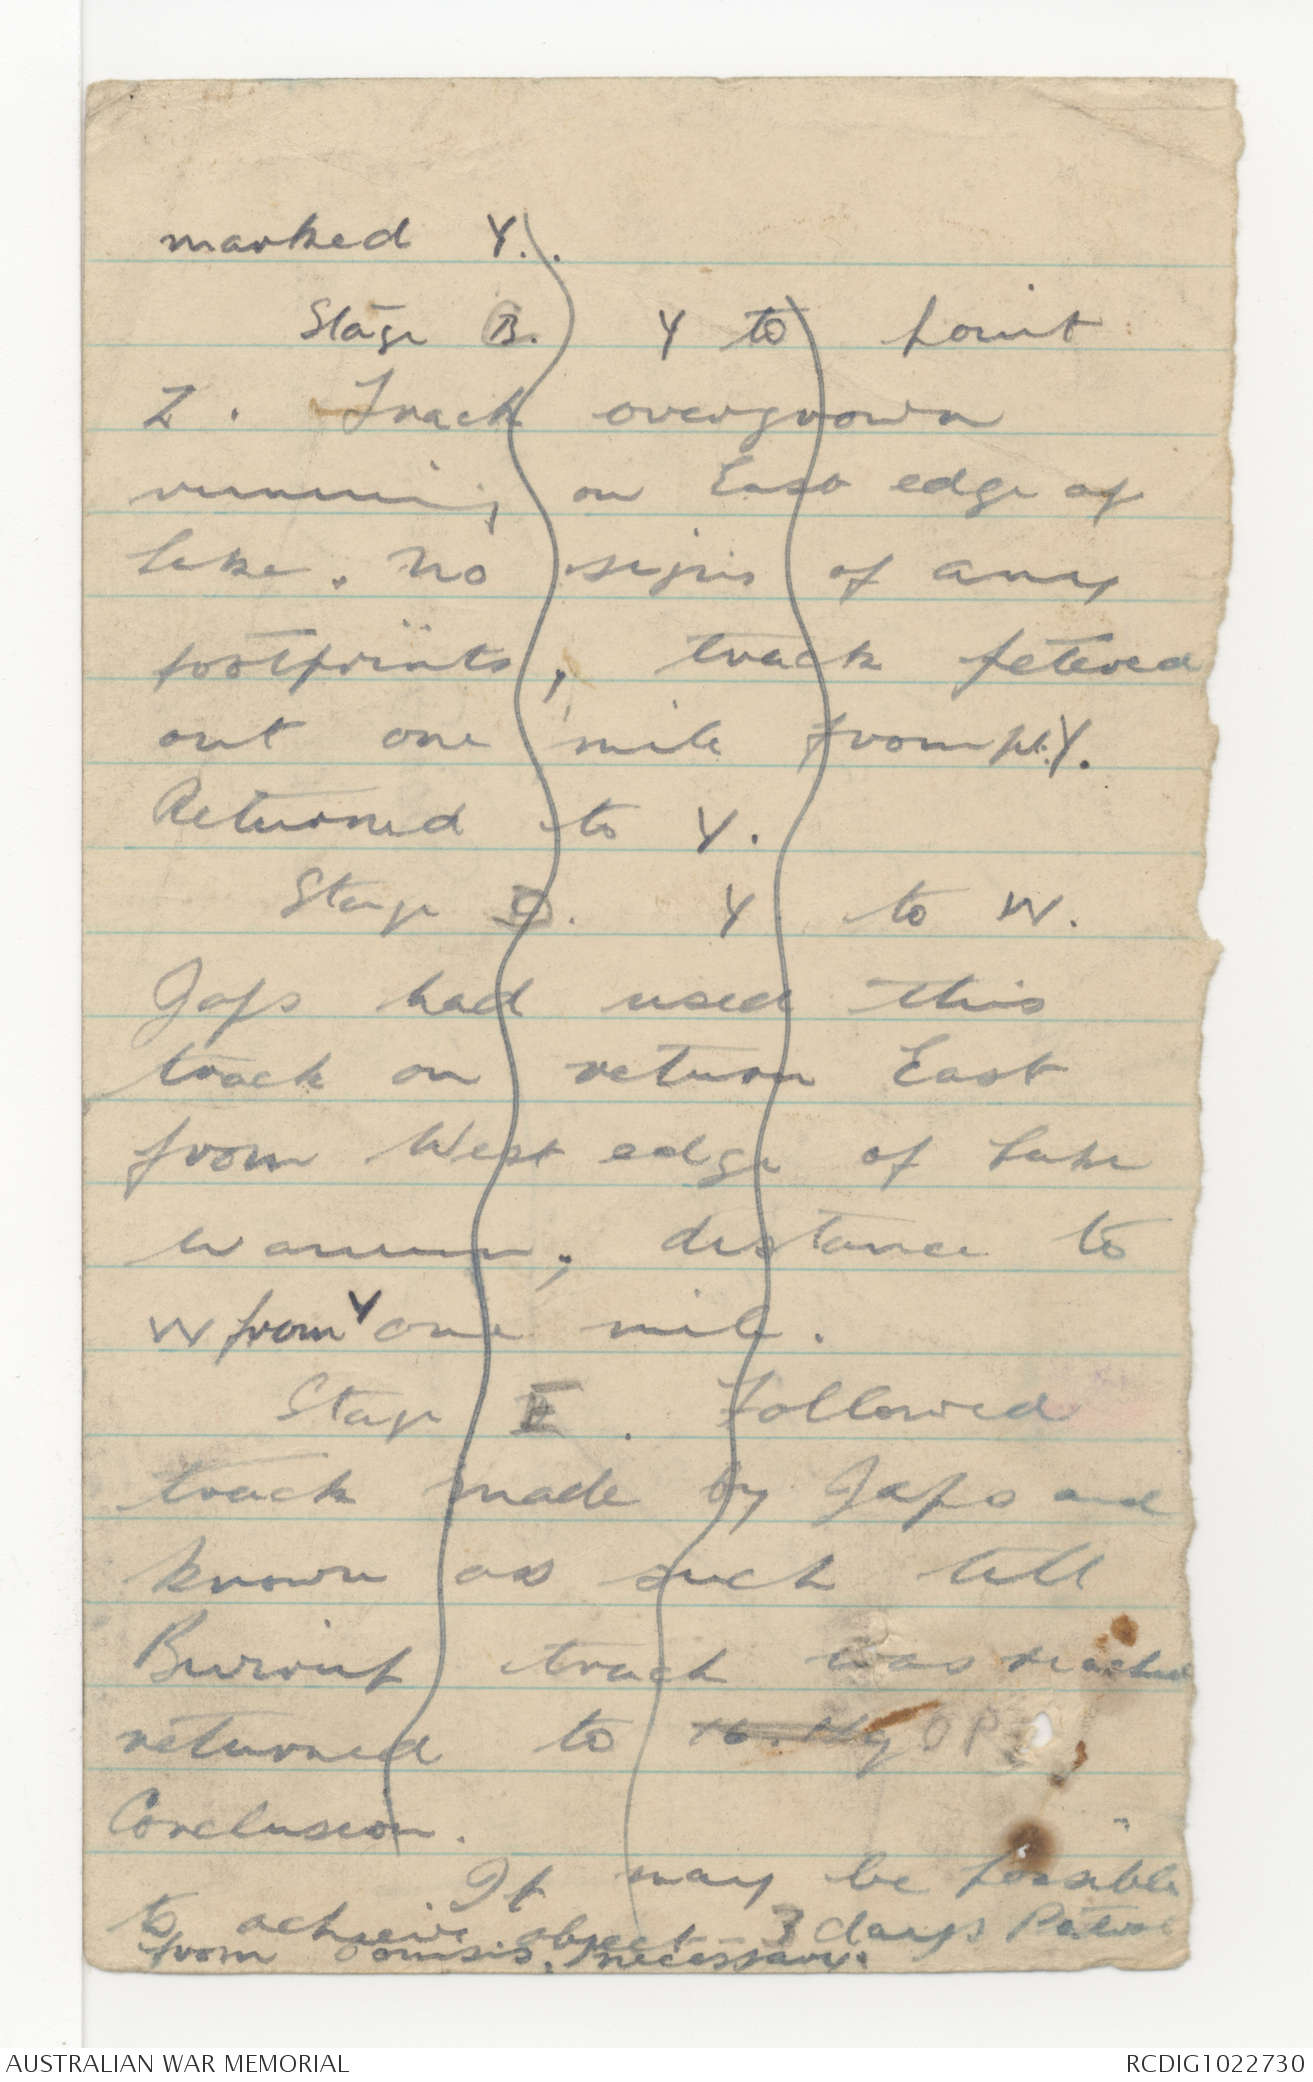 marked Y.
Stage B. Y to point
Z. Track overgrown
running on East edge of
lake. No signs of any
footprints, track petered
out one mile from pt. Y.
Returned to Y.
Stage D. Y to W.
Japs had used this
track on return East
from West edge of Lake
Wanum, distance to
W from Y one mile.
Stage E. Followed
track made by Japs and
known as such till
track was reached
returned to OP
Conclusion.
It may be possible
to achieve object - 3 days Patrol
from necessary.
AUSTRALIAN WAR MEMORIAL
RCDIG1022730